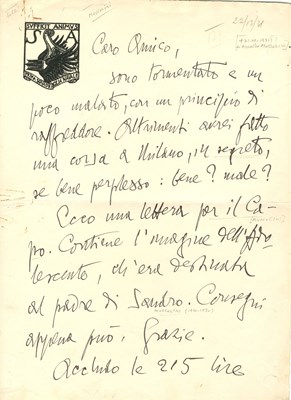 SVFFICIT ANIMVS
Caro Amico,
sono tormentato e un
poco malato, con un principio di
raffreddore. Altrimenti avrei fatto
una corsa a Milano, in segreto,
se bene perplesso: bene? male?
Ecco una lettera per il Ca-
po. Contiene l'imagine dell'Ado-
lescente, ch'era destinata
al padre di Sandro. Consegni
appena può. Grazie.
Accludo le 215 lire